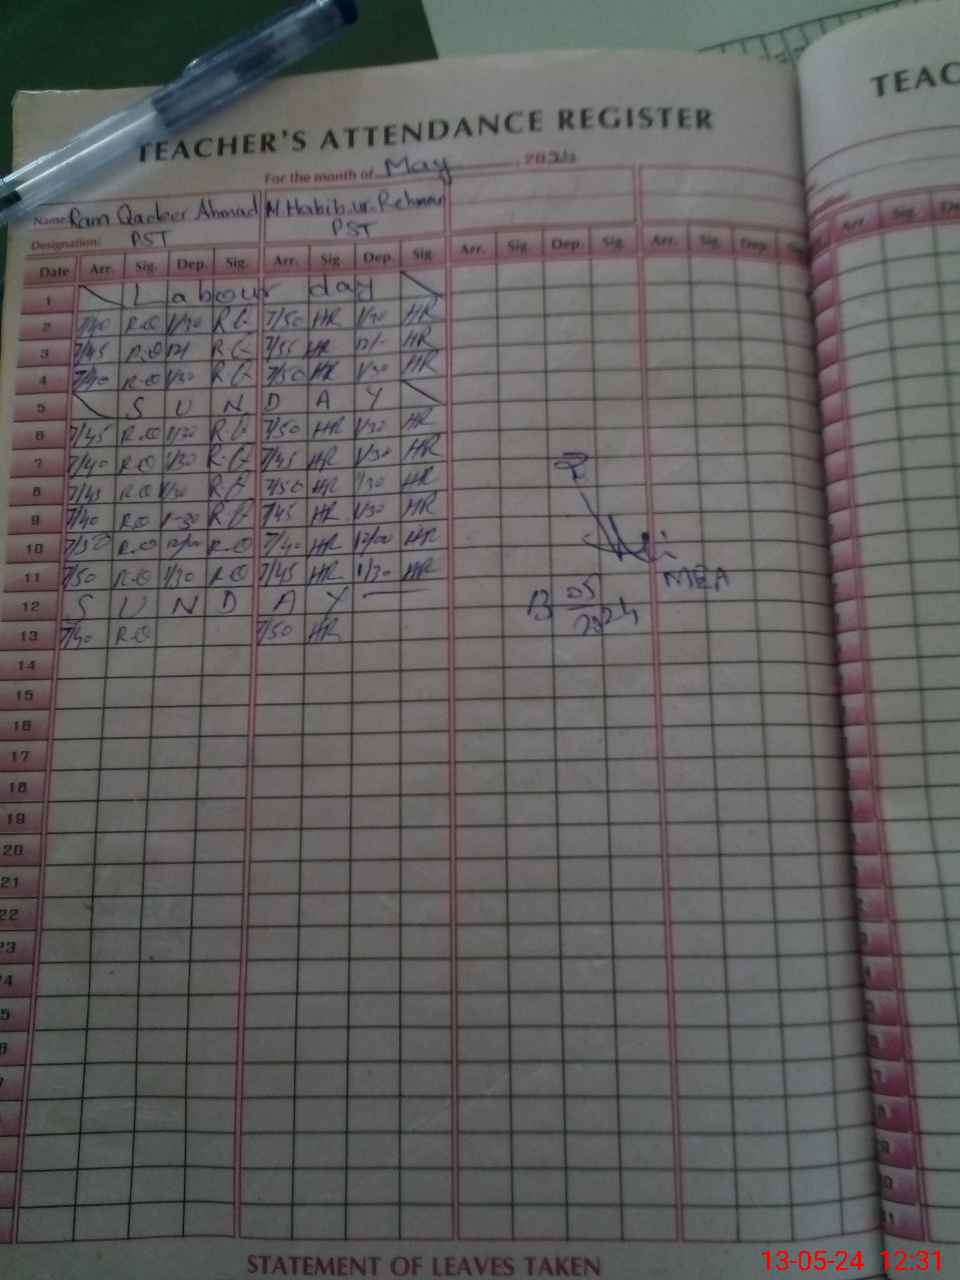 TEACHER'S ATTENDANCE REGISTER
TEAC
For the month of May, 2024
Name: Rana Qadeer Ahmad M. Habib.ur.Rehman
Designation: PST PST
Date Arr. Sig. Dep. Sig. Arr. Sig. Dep. Sig. Arr. Sig. Dep. Sig. Arr. Sig. Dep. Arr. Sig.
1 Labour day
2 7/40 R.Q 1/30 R.Q 7/50 HR 1/30 HR
3 7/45 R.Q 12/- R.Q 7/55 HR 12/- HR
4 7/40 R.Q 1/30 R.Q 7/50 HR 1/30 HR
5 S U N D A Y
6 7/45 R.Q 1/30 R.Q 7/50 HR 1/30 HR
7 7/40 R.Q 1/30 R.Q 7/45 HR 1/30 HR
8 7/45 R.Q 1/30 R.Q 7/50 HR 1/30 HR
9 7/40 R.Q 1-30 R.Q 7/45 HR 1/30 HR
10 7/50 R.Q 12/00 R.Q 7/40 HR 12/00 HR
11 7/50 R.Q 1/30 R.Q 7/45 HR 1/30 HR
MEA
12 S U N D A Y
13 05
2024
13 7/40 R.Q 7/50 HR
14
15
16
17
18
19
20
21
22
23
STATEMENT OF LEAVES TAKEN
13-05-24 12:31